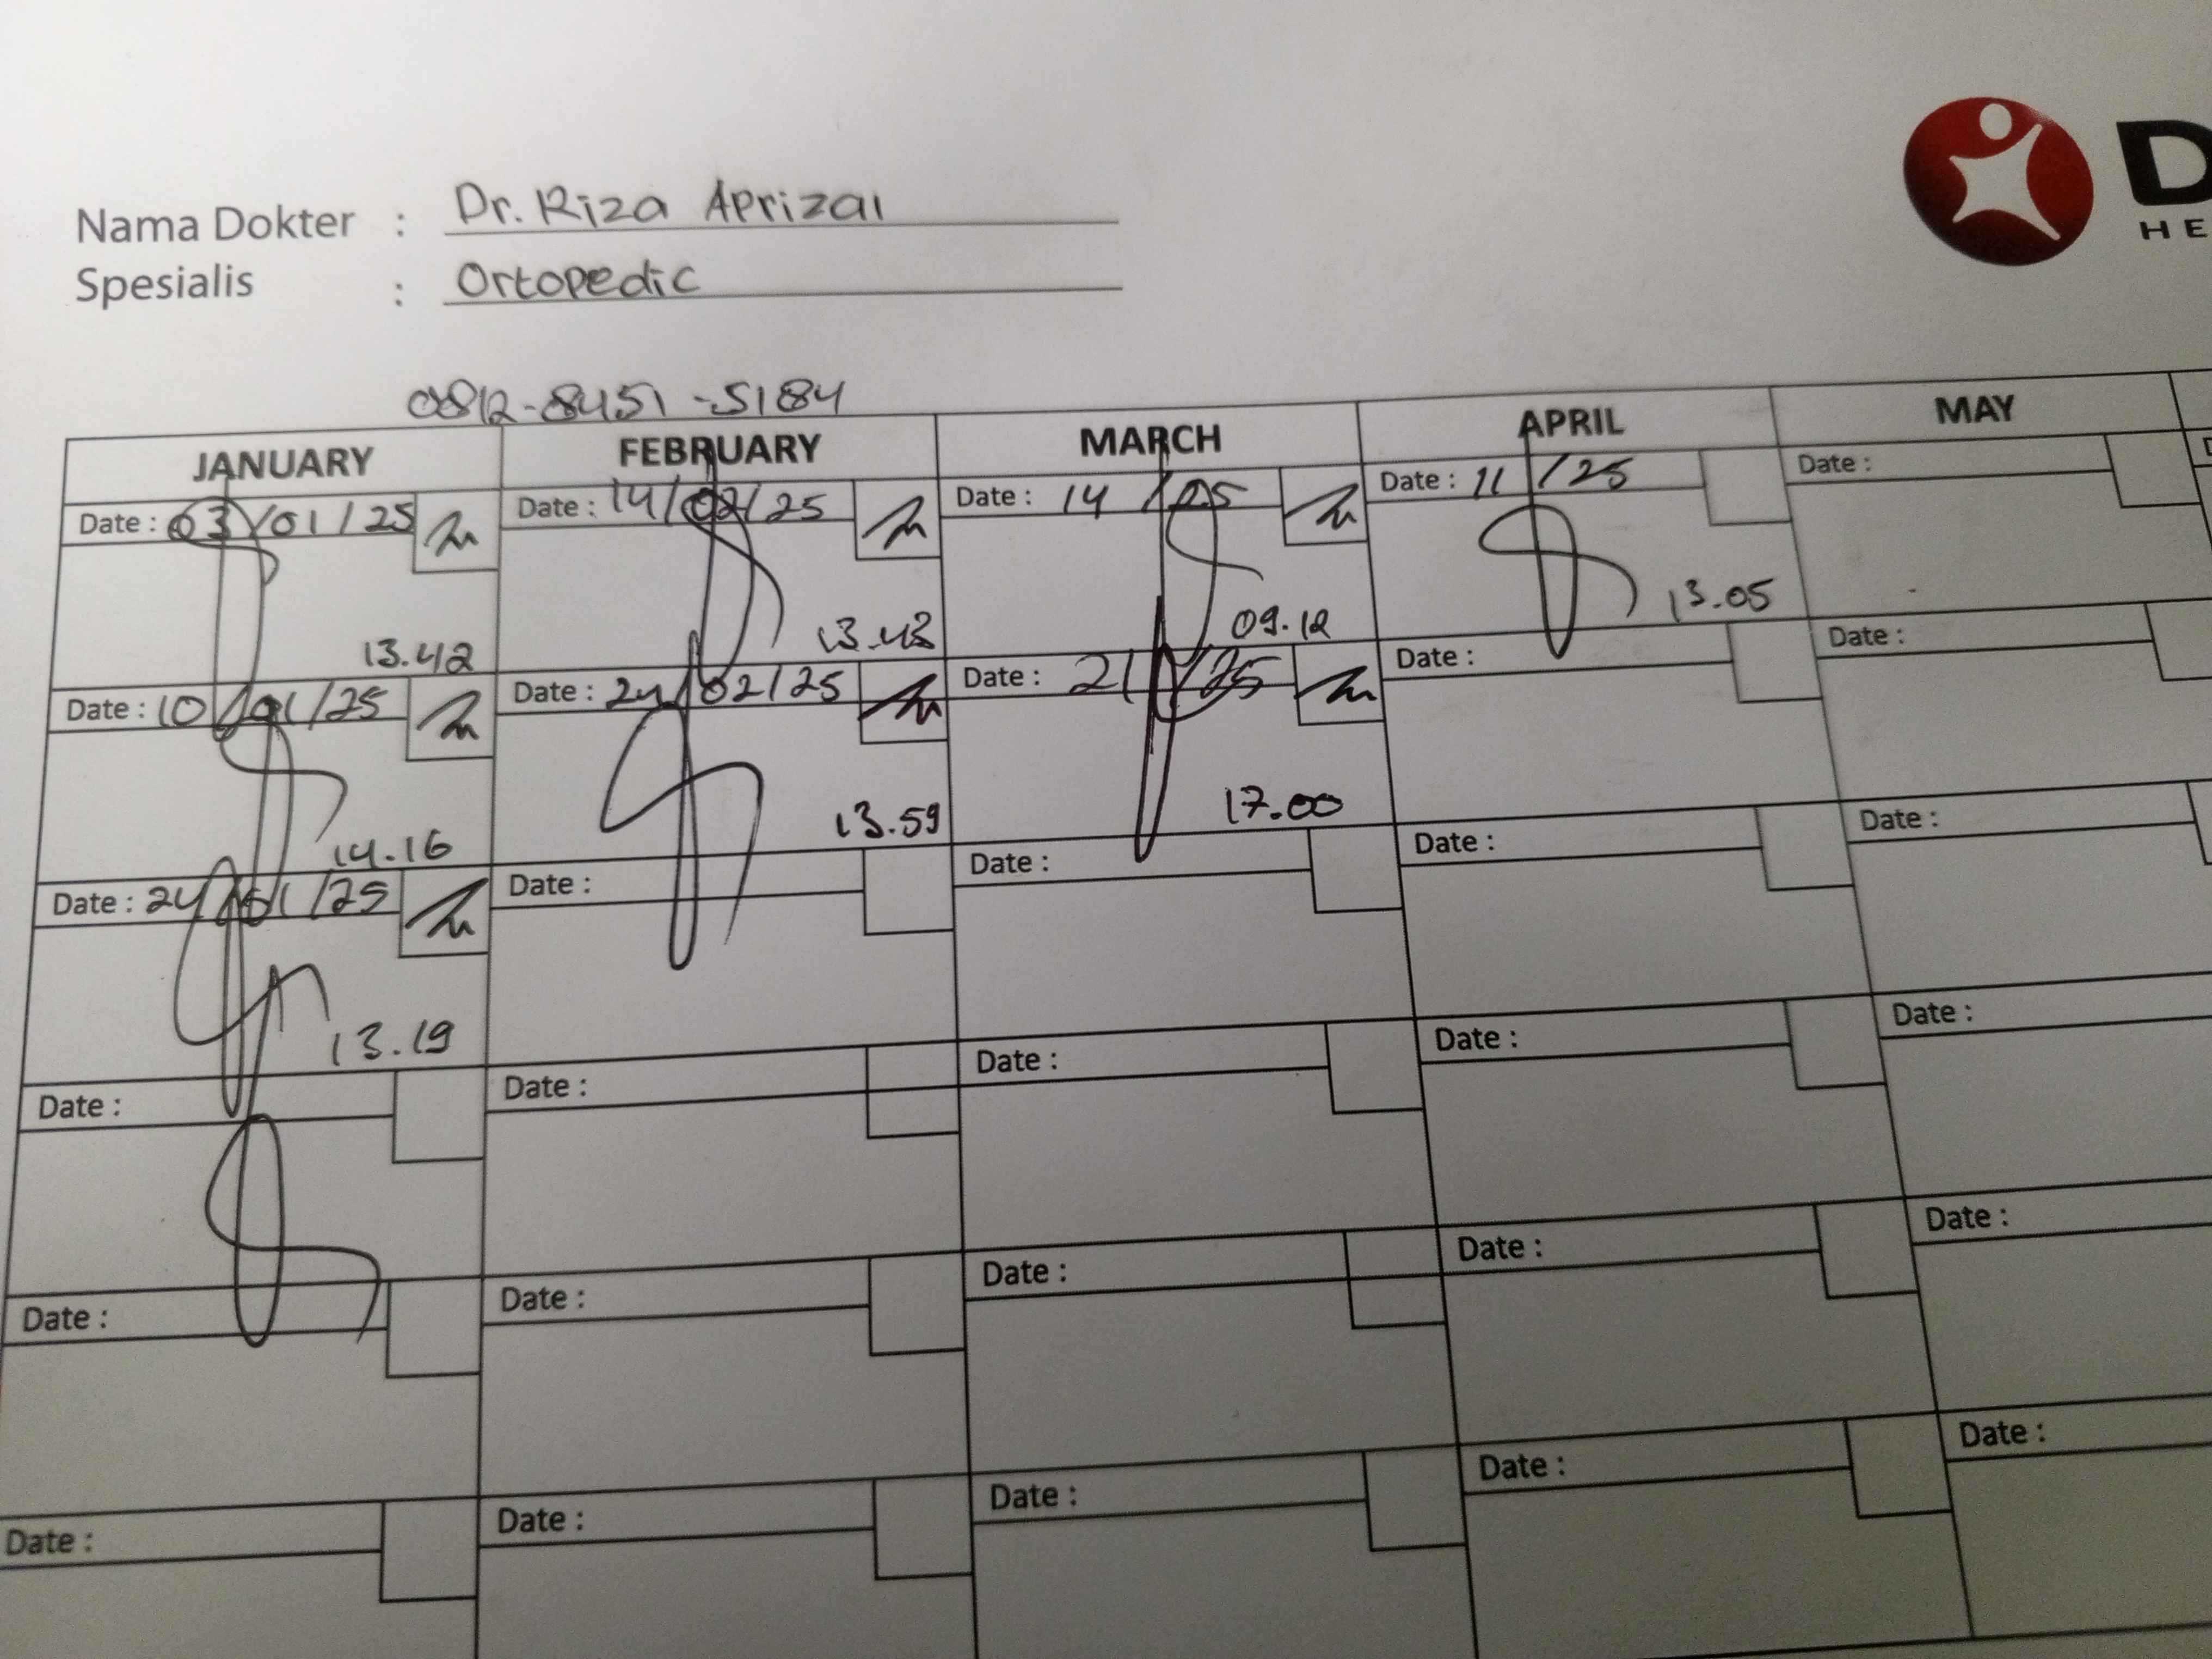 Nama Dokter : Dr. Riza Aprizal
Spesialis : Ortopedic
D
HE
0812-8451-5184
JANUARY FEBRUARY MARCH APRIL MAY
Date : 03/01/25 Date : 14/02/25 Date : 14 /25 Date : 11 /25 Date :
13.42 13.43 09.12 13.05
Date : 10/01/25 Date : 24/02/25 Date : 21/ /25 Date : Date :
14.16 13.59 17.00
Date : 24/01/25 Date : Date : Date : Date :
13.19
Date : Date : Date : Date : Date :
Date : Date : Date : Date : Date :
Date : Date : Date : Date : Date :